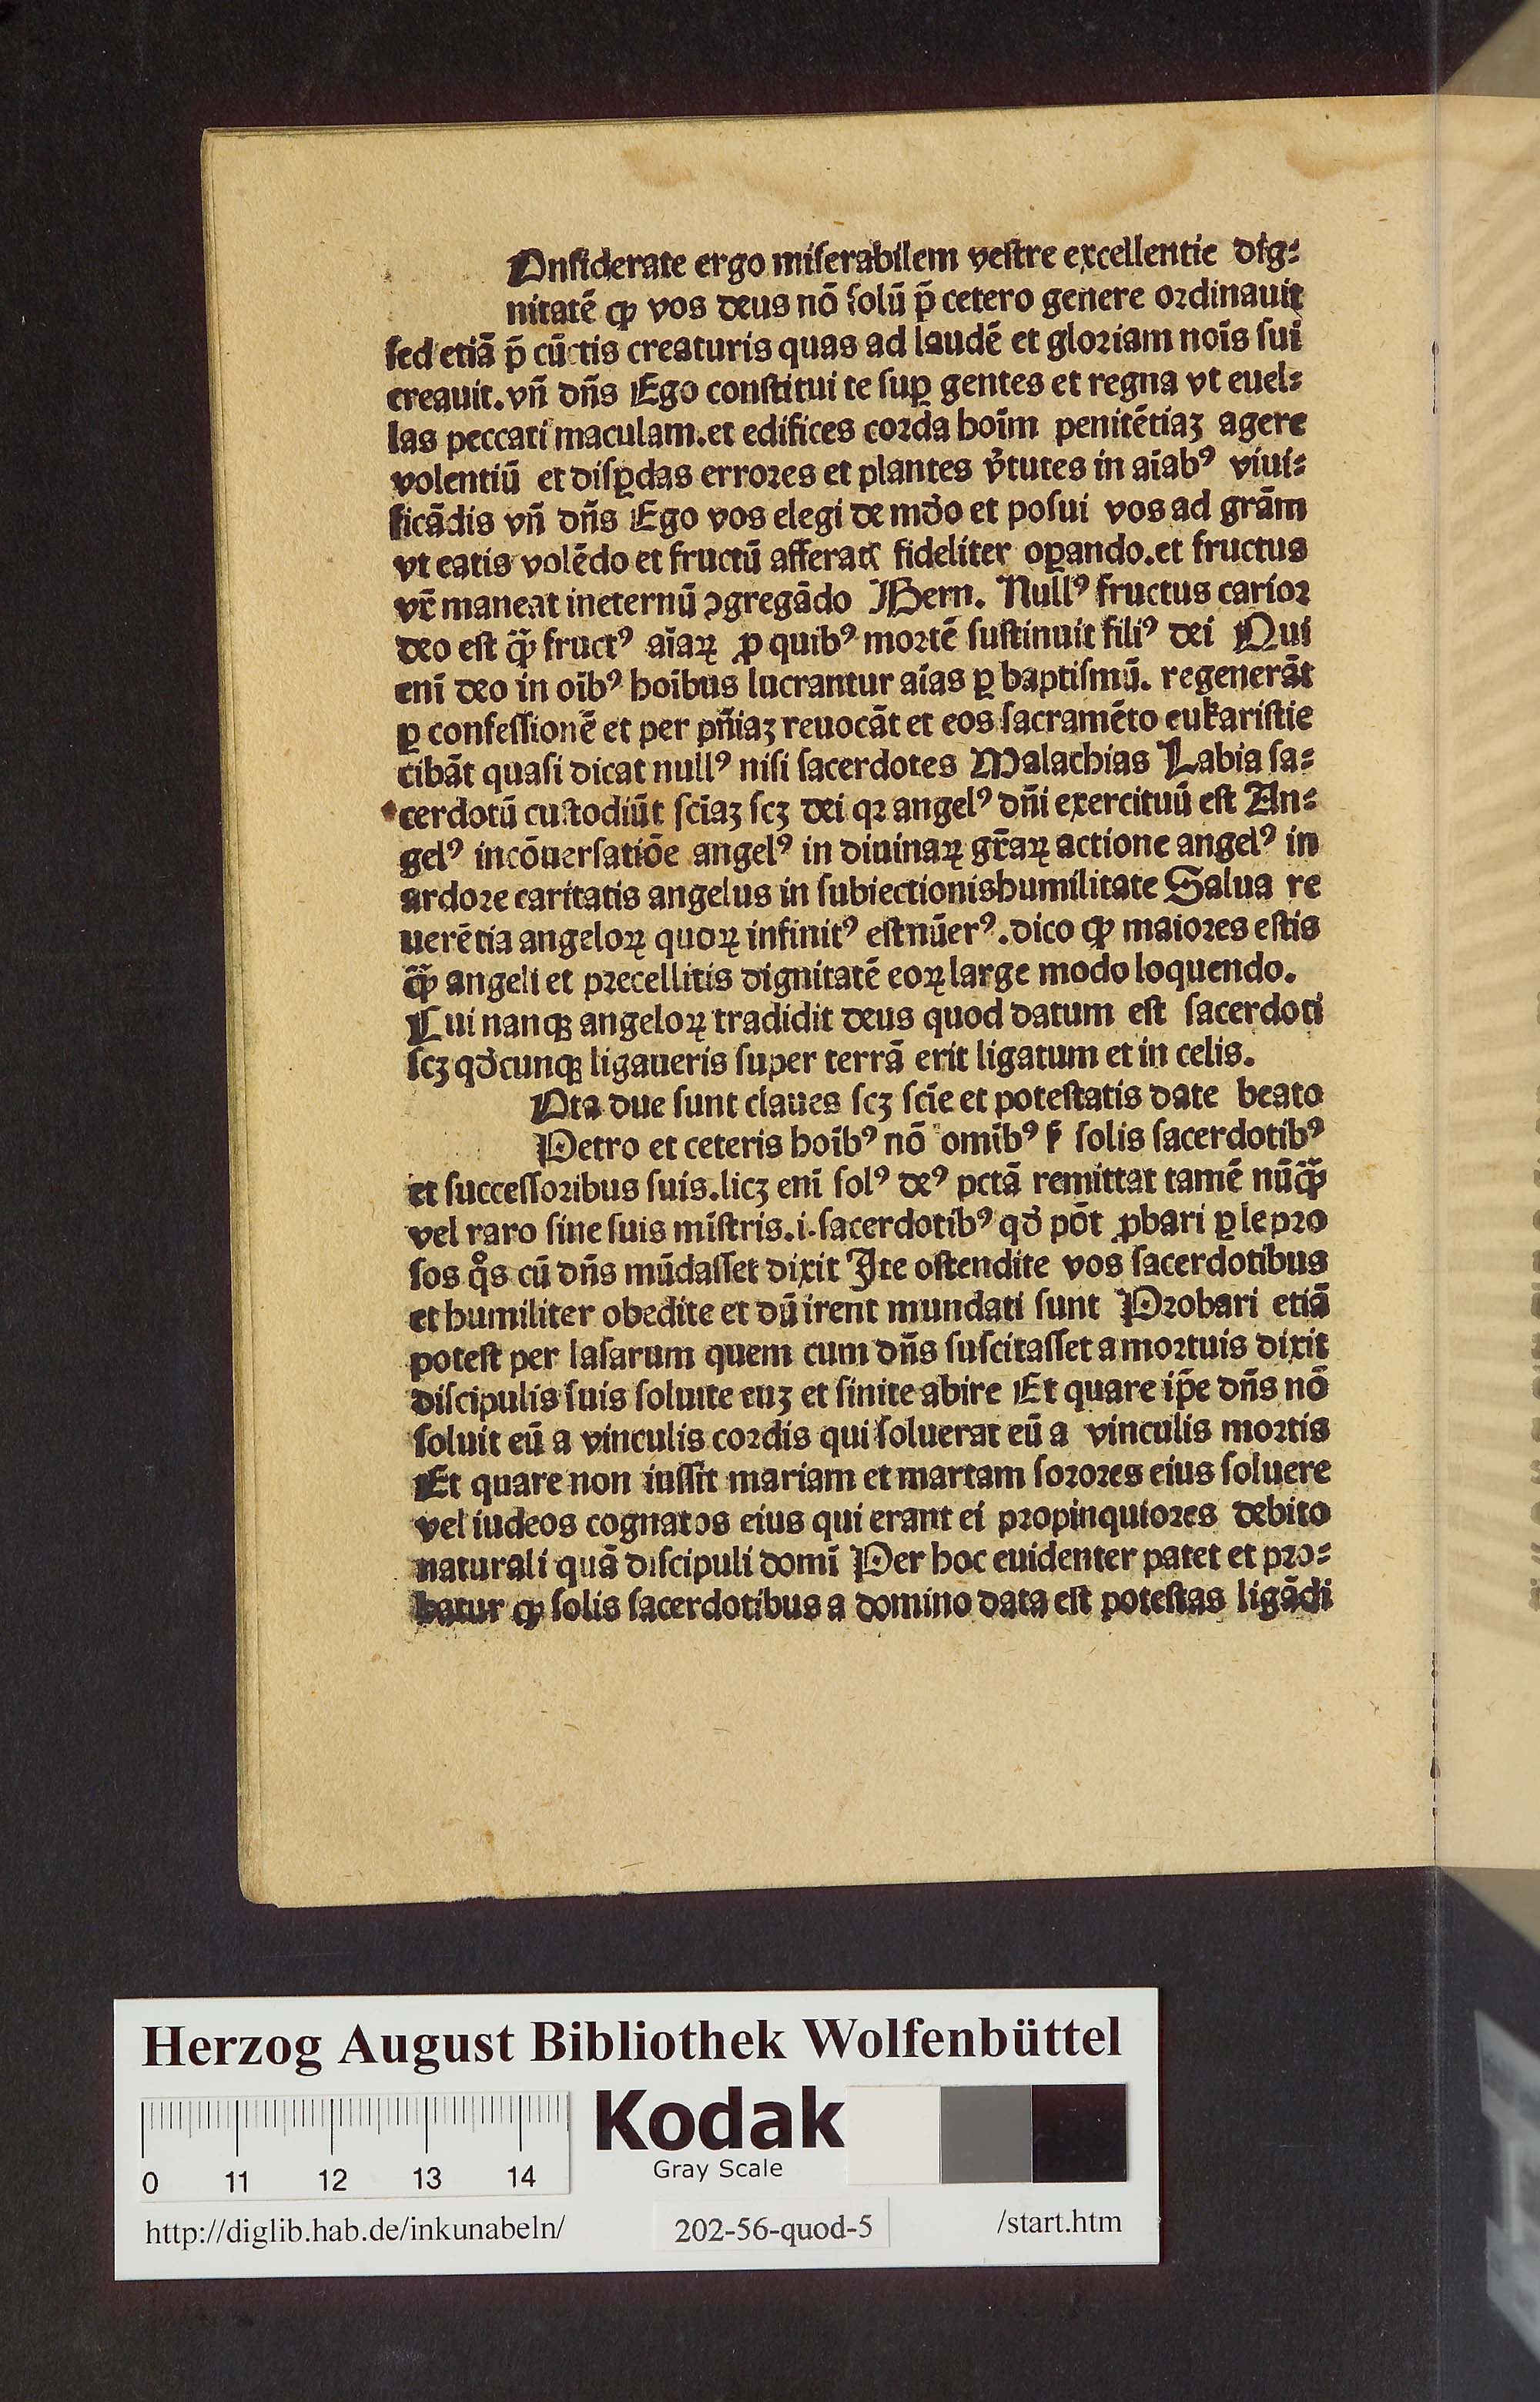 Onſiderate ergo miſerabilem veſtre excellentie dig⸗
nitatē ꝙ vos deus nō ſolū p̄ cetero genere ordinauit
ſed etiā p̄ cūctis creaturis quas ad laudē et gloriam noīs ſui
creauit. vn̄ dn̄s Ego conſtitui te ſuꝑ gentes et regna vt euel⸗
las peccati maculam. et edifices corda hoīm penitētiaꝫ agere
volentiū et diſꝑdas errores et plantes v̓tutes in aīabꝰ viui⸗
ficādis vn̄ dn̄s Ego vos elegi de mūdo et poſui vos ad grām
vt eatis volēdo et fructū afferatꝭ fideliter oꝑando. et fructus
vr̄ maneat ineternū ↄgregādo Bern. Nullꝰ fructus carior
deo eſt ꝙ̄ fructꝰ aīaꝝ ꝓ quibꝰ mortē ſuſtinuit filiꝰ dei Qui
enī deo in oībꝰ hoībus lucrantur aīas ꝑ baptiſmū. regenerāt
ꝑ confeſſionē et per pn̄iaꝫ reuocāt et eos ſacramēto eukariſtie
cibāt quaſi dicat nullꝰ niſi ſacerdotes Malachias Labia ſa⸗
cerdotū cuſtodiūt ſcīaꝫ ſcꝫ dei qꝛ angelꝰ dn̄i exercituū eſt An⸗
gelꝰ incōuerſatiōe angelꝰ in diuinaꝝ gr̄aꝝ actione angelꝰ in
ardore caritatis angelus in ſubiectionishumilitate Salua re
uerētia angeloꝝ quoꝝ infinitꝰ eſtnūerꝰ. dico ꝙ maiores eſtis
ꝙ̄ angeli et precellitis dignitatē eoꝝ large modo loquendo.
Cui nanqꝫ angeloꝝ tradidit deus quod datum eſt ſacerdoti
ſcꝫ qd̄cunqꝫ ligaueris ſuper terrā erit ligatum et in celis.
Ota due ſunt claues ſcꝫ ſcīe et poteſtatis date beato
Petro et ceteris hoībꝰ nō omībꝰ ſꝫ ſolis ſacerdotibꝰ
et ſucceſſoribus ſuis. licꝫ enī ſolꝰ deꝰ pctā remittat tamē nūꝙ̄
vel raro ſine ſuis miſtris. i. ſacerdotibꝰ qd̄ pōt ꝓbari ꝑ lepro
ſos qͦs cū dn̄s mūdaſſet dixit Ite oſtendite vos ſacerdotibus
et humiliter obedite et dū irent mundati ſunt Probari etiā
poteſt per laſarum quem cum dn̄s ſuſcitaſſet a mortuis dixit
diſcipulis ſuis ſoluite euꝫ et ſinite abire Et quare ip̄e dn̄s nō
ſoluit eū a vinculis cordis qui ſoluerat eū a vinculis mortis
Et quare non iuſſit mariam et martam ſorores eius ſoluere
vel iudeos cognatos eius qui erant ei propinquiores debito
naturali quā diſcipuli domī Per hoc euidenter patet et pro⸗
batur ꝙ ſolis ſacerdotibus a domino data eſt poteſtas ligādi
Herzog August Bibliothek Wolfenbüttel
Kodak
Gray Scale
0 11 12 13 14
http://diglib.hab.de/inkunabeln/ 202-56-quod-5 /start.htm